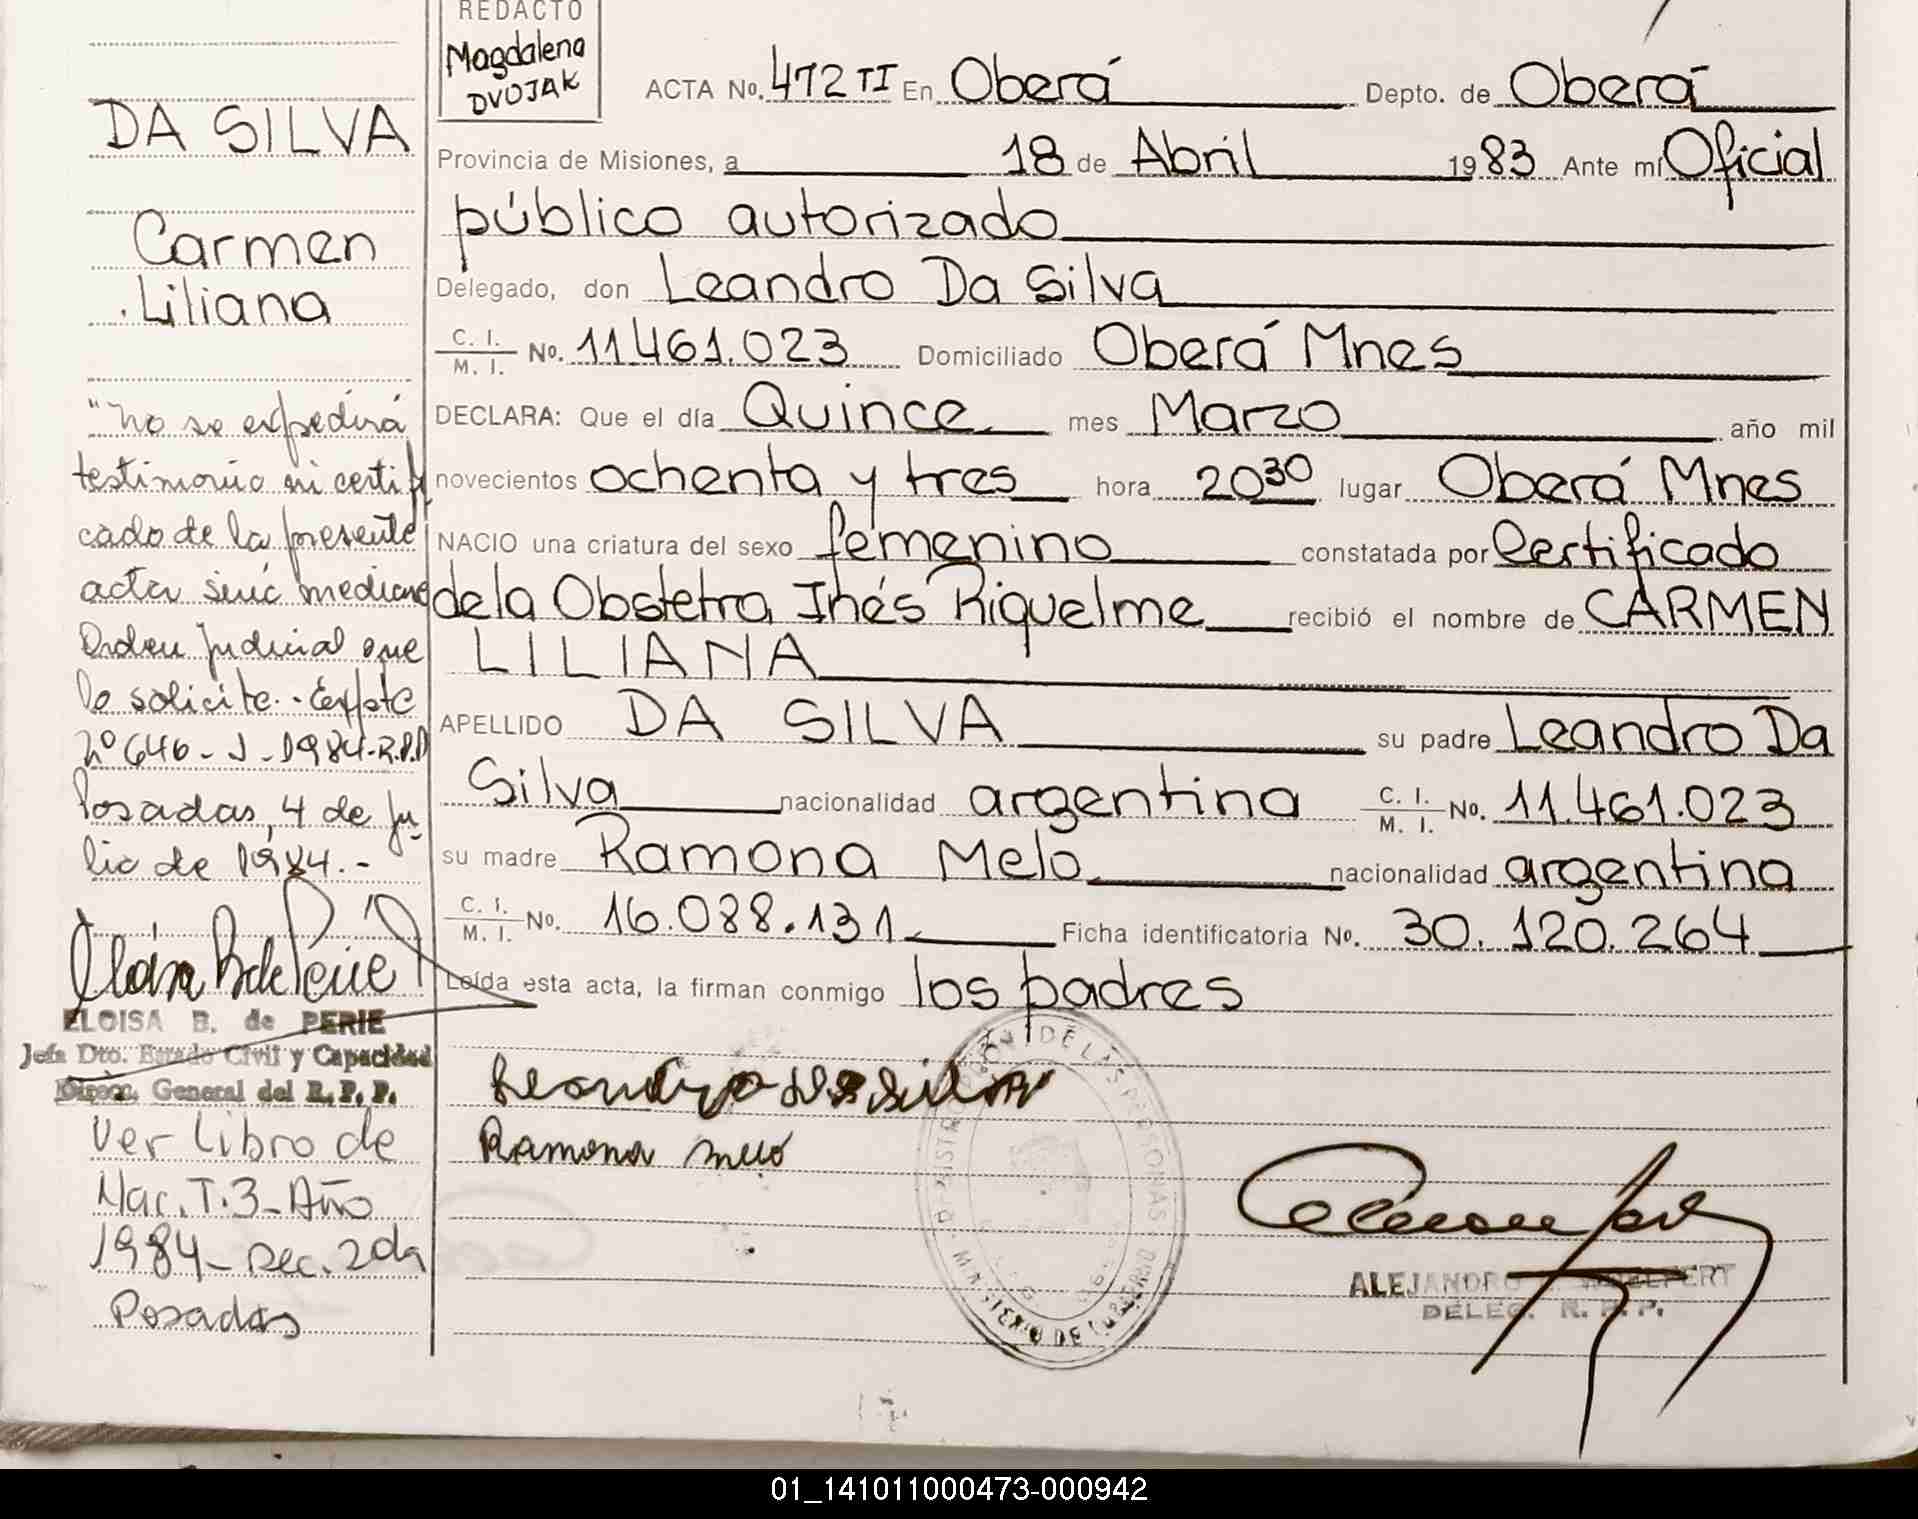 REDACTO
Magdalena
DVOJAK
DA SILVA
Carmen
Liliana
"No se expedirá
testimonio ni certifi
cado de la presente
acta sinó mediante
Orden Judicial que
lo solicite.- Expte
Nº 646-J-1984-R.P.P
Posadas, 4 de Ju-
lio de 1984.-
ELOISA B. de PERIE
Jefa Dto. Estado Civil y Capacidad
Direcc. General del R. P. P.
Ver Libro de
Nac. T.3- Año
1984- Sec. 2da
Posadas
ACTA No. 472 TI En Oberá Depto. de Oberá
Provincia de Misiones, a 18 de Abril 1983 Ante mí Oficial
público autorizado
Delegado, don Leandro Da Silva
C. I. / M. I. No. 11.461.023 Domiciliado Oberá Mnes
DECLARA: Que el día Quince mes Marzo año mil
novecientos ochenta y tres hora 20 30 lugar Oberá Mnes
NACIO una criatura del sexo femenino constatada por Certificado
de la Obstetra Inés Riquelme recibió el nombre de CARMEN
LILIANA
APELLIDO DA SILVA su padre Leandro Da
Silva nacionalidad argentina C. I. / M. I. No. 11.461.023
su madre Ramona Melo nacionalidad argentina
C. I. / M. I. No. 16.088.131 Ficha identificatoria No. 30.120.264
Leída esta acta, la firman conmigo los padres
Leandro Da Silva
Ramona Melo
ALEJANDRO
DELEG. R. P. P.
01_141011000473-000942